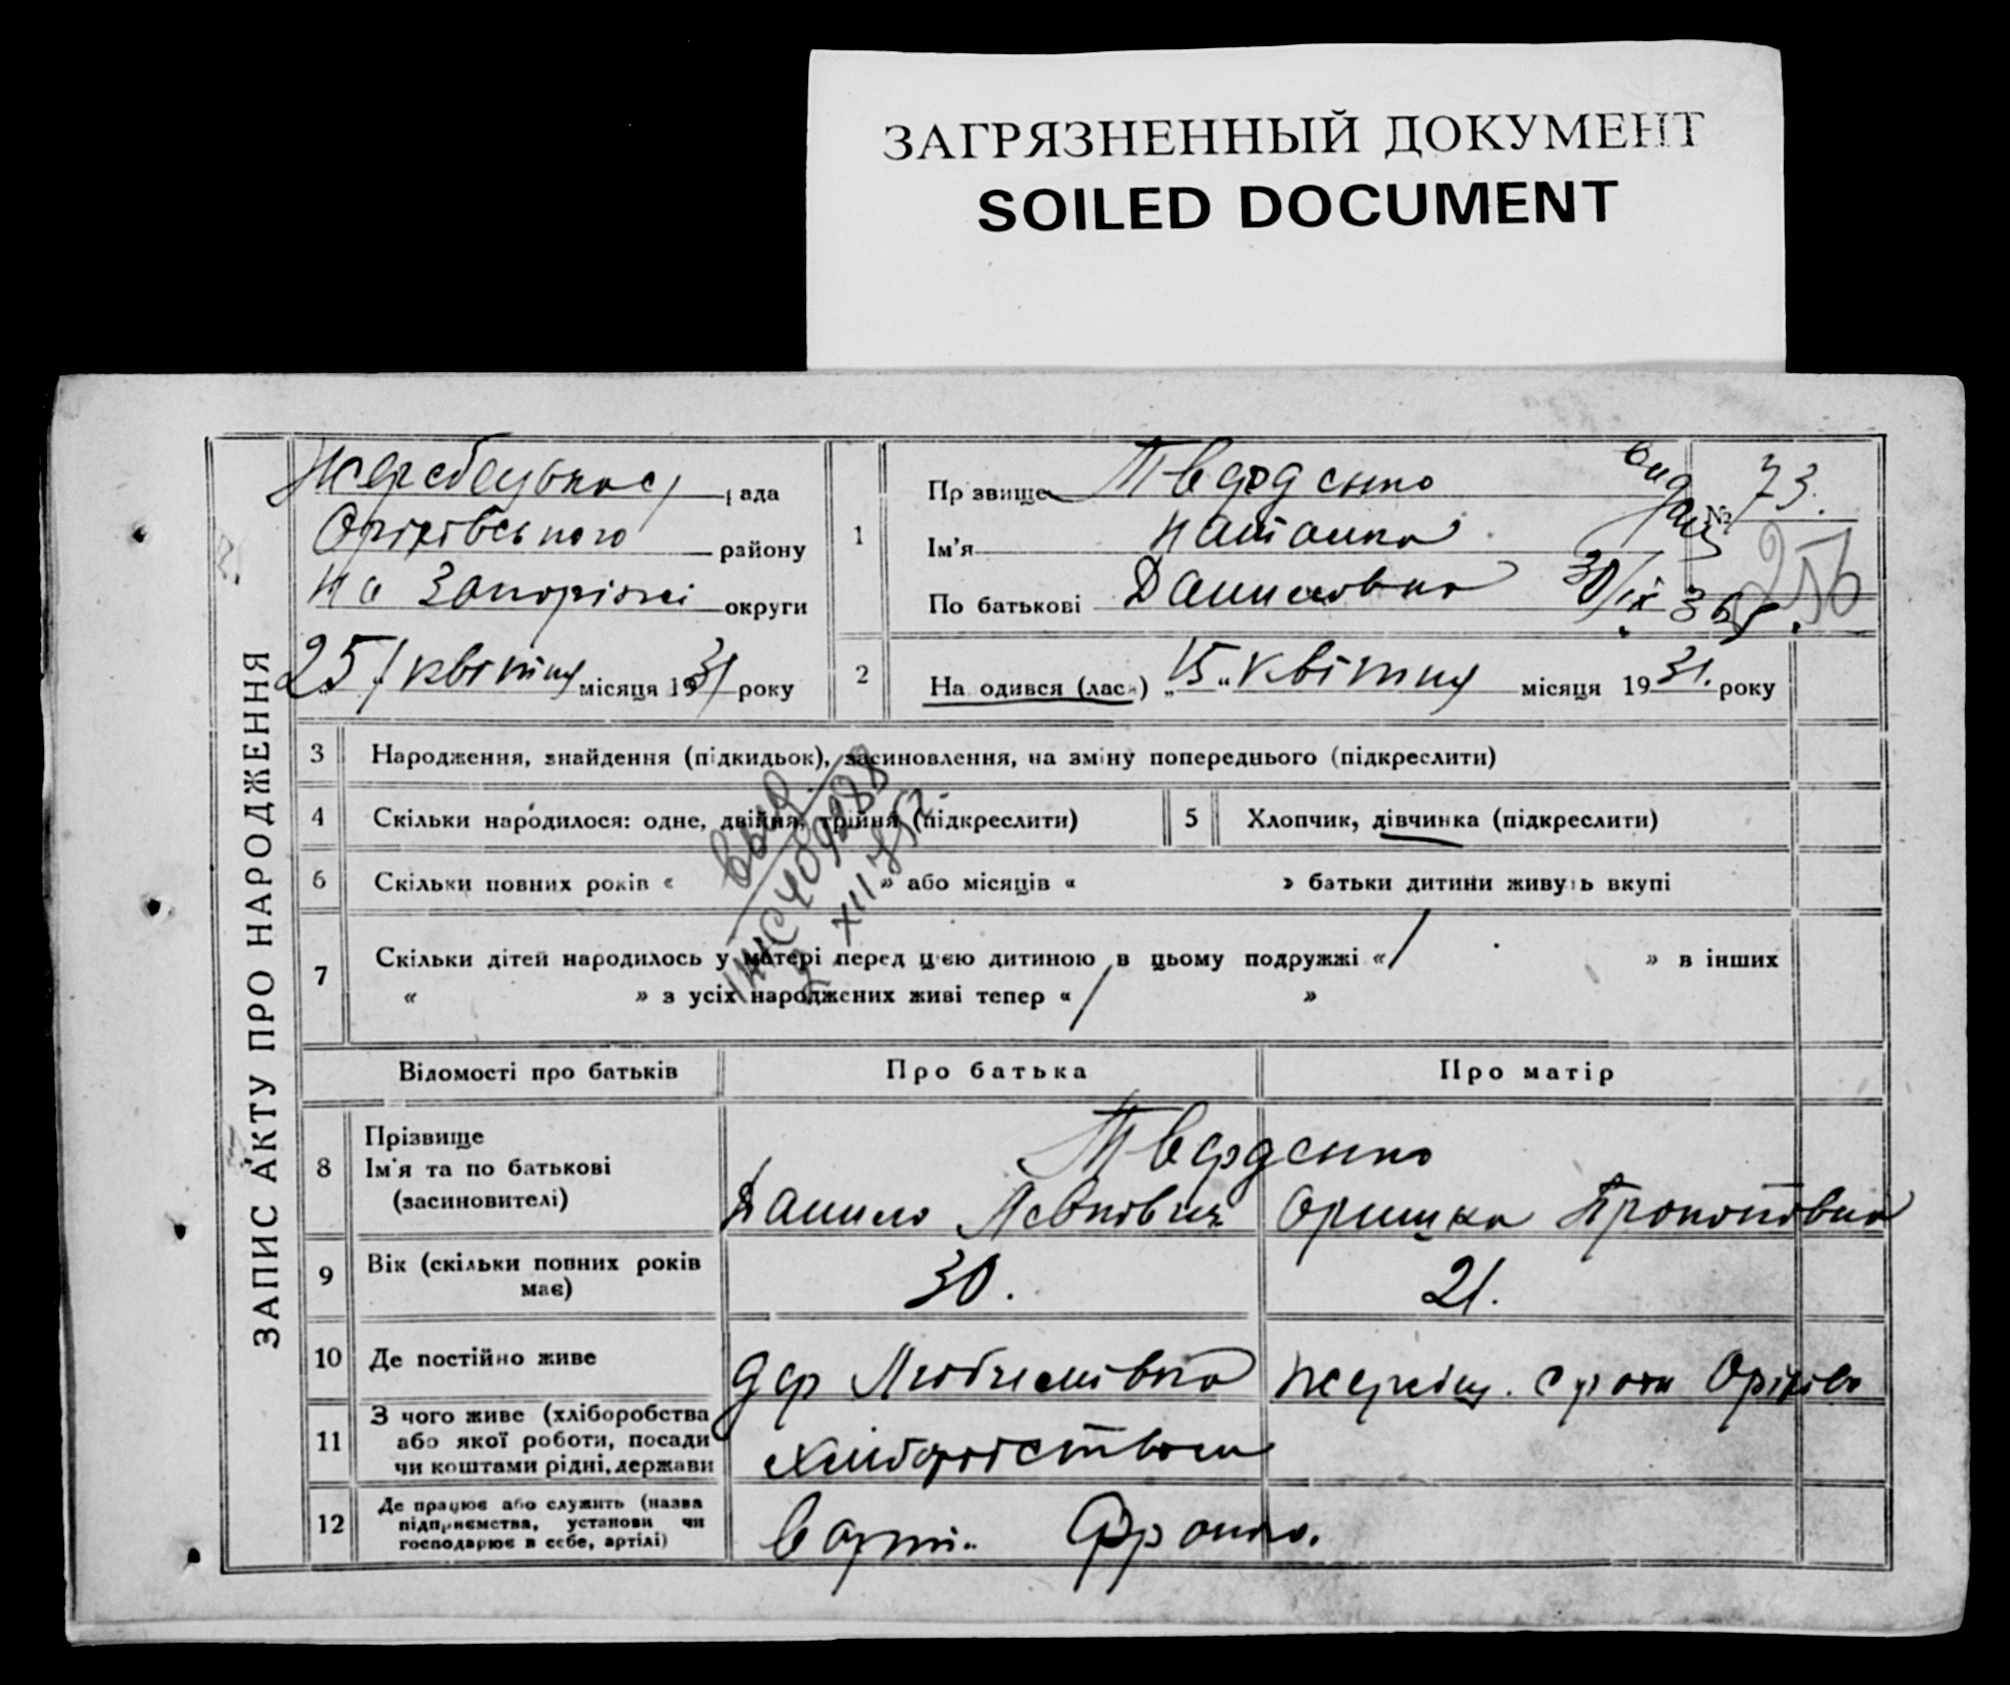 ЗАГРЯЗНЕННЫЙ ДОКУМЕНТ
SOILED DOCUMENT
ЗАПИС АКТУ ПРО НАРОДЖЕННЯ
рада
Оріхівського району
на Запоріжжі округи
25 / квітня місяця 1931 року
1
Прізвище Тверденко
Ім'я Наталка
По батькові Даниловна
видано
№ 73.
256
30/ІХ 36
2 Народився (лася) „15“ квітня місяця 1931. року
3 Народження, знайдення (підкидьок), засиновлення, на зміну попереднього (підкреслити)
4 Скільки народилося: одне, двійня, трійня (підкреслити)
5 Хлопчик, дівчинка (підкреслити)
6 Скільки повних років « » або місяців « » батьки дитини живуть вкупі
7 Скільки дітей народилось у матері перед цією дитиною в цьому подружжі «/ » в інших
« » з усіх народжених живі тепер «/ »
Відомості про батьків Про батька Про матір
8 Прізвище
Ім'я та по батькові
(засиновителі)
Тверденко
Данило Левкович Оришка Прокоповна
9 Вік (скільки повних років
має)
30. 21.
10 Де постійно живе
Любимівка
11 З чого живе (хліборобства
або якої роботи, посади
чи коштами рідні, держави
хліборобством
12 Де працює або служить (назва
підприємства, установи чи
господарює в себе, артілі)
в арт.